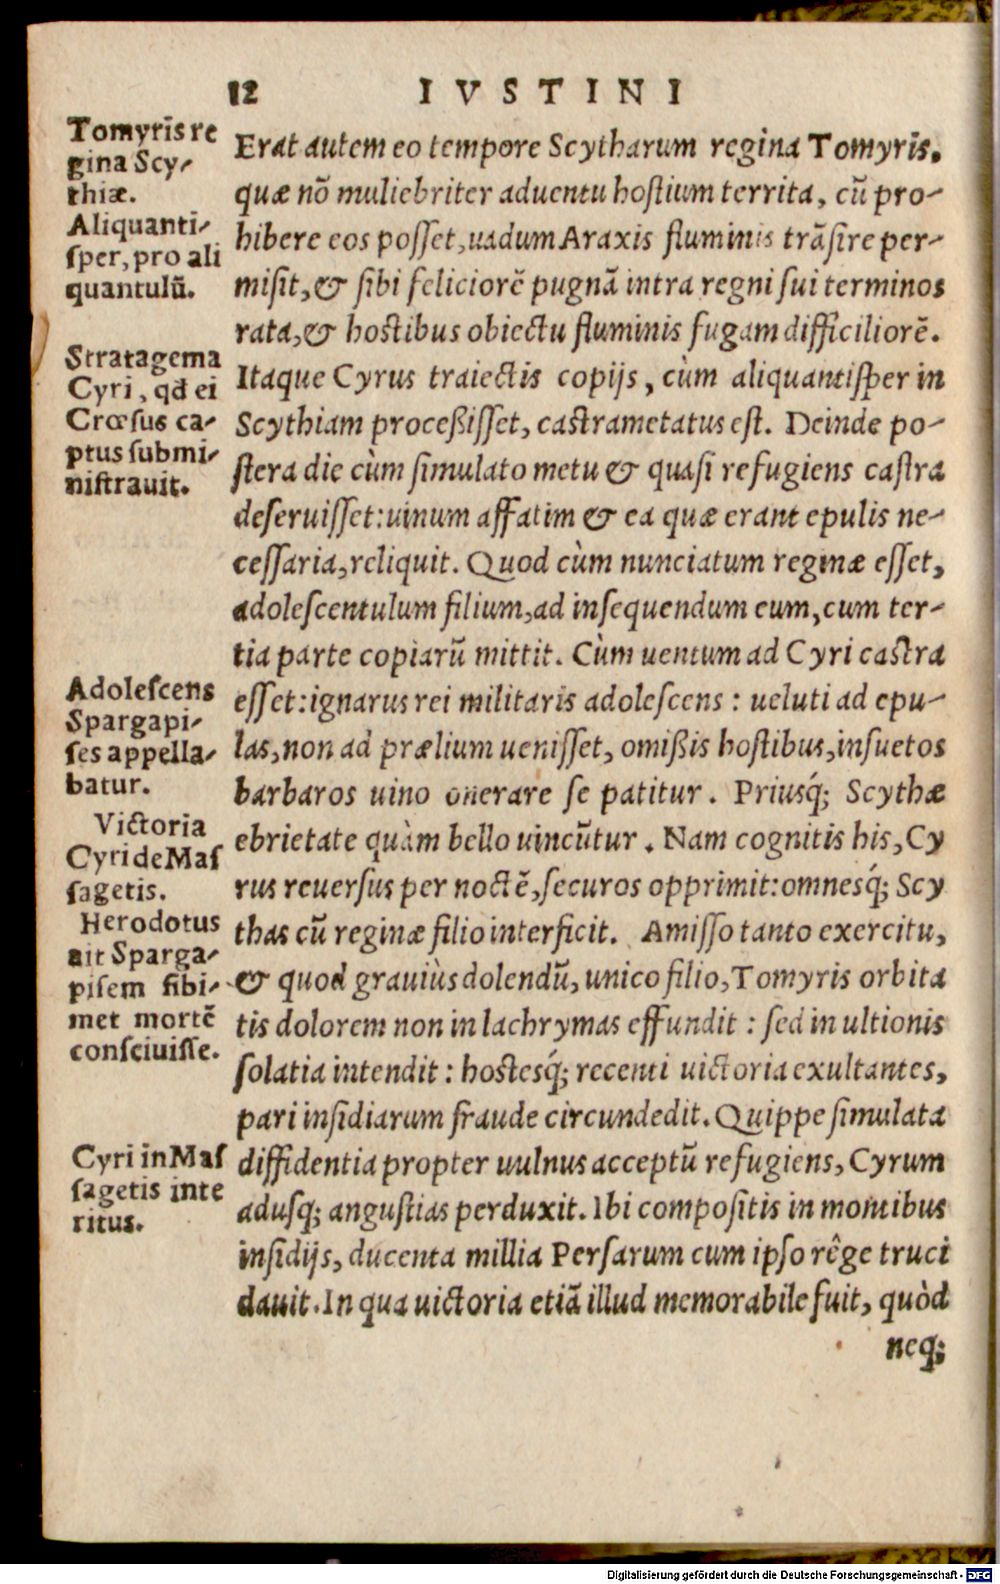 12 IVSTINI
Tomyris re
gina Scy-
thiæ.
Aliquanti-
sper, pro ali
quantulū.
Stratagema
Cyri, qđ ei
Crœsus ca-
ptus submi-
nistrauit.
Adolescens
Spargapi-
ses appella-
batur.
Victoria
Cyri de Mas
sagetis.
Herodotus
ait Sparga-
pisem sibi-
met mortē
consciuisse.
Cyri in Mas
sagetis inte
ritus.
Erat autem eo tempore Scytharum regina Tomyris.
quæ nō muliebriter aduentu hostium territa, cū pro-
hibere eos posset, uadum Araxis fluminis trāsire per-
misit, & sibi feliciorē pugnā intra regni sui terminos
rata, & hostibus obiectu fluminis fugam difficiliorē.
Itaque Cyrus traiectis copijs, cùm aliquantisper in
Scythiam processisset, castrametatus est. Deinde po-
stera die cùm simulato metu & quasi refugiens castra
deseruisset: uinum affatim & ea quæ erant epulis ne-
cessaria, reliquit. Quod cùm nunciatum reginæ esset,
adolescentulum filium, ad insequendum eum, cum ter-
tia parte copiarū mittit. Cùm uentum ad Cyri castra
esset: ignarus rei militaris adolescens: ueluti ad epu-
las, non ad prælium uenisset, omißis hostibus, insuetos
barbaros uino onerare se patitur. Priusq́; Scythæ
ebrietate quàm bello uincūtur. Nam cognitis his, Cy
rus reuersus per noctē, securos opprimit: omnesq́; Scy
thas cū reginæ filio interficit. Amisso tanto exercitu,
& quod grauiùs dolendū, unico filio, Tomyris orbita
tis dolorem non in lachrymas effundit: sed in ultionis
solatia intendit: hostesq́; recenti uictoria exultantes,
pari insidiarum fraude circundedit. Quippe simulata
diffidentia propter uulnus acceptū refugiens, Cyrum
adusq; angustias perduxit. Ibi compositis in montibus
insidijs, ducenta millia Persarum cum ipso rêge truci
dauit. In qua uictoria etiā illud memorabile fuit, quòd
neq;
Digitalisierung gefördert durch die Deutsche Forschungsgemeinschaft - DFG